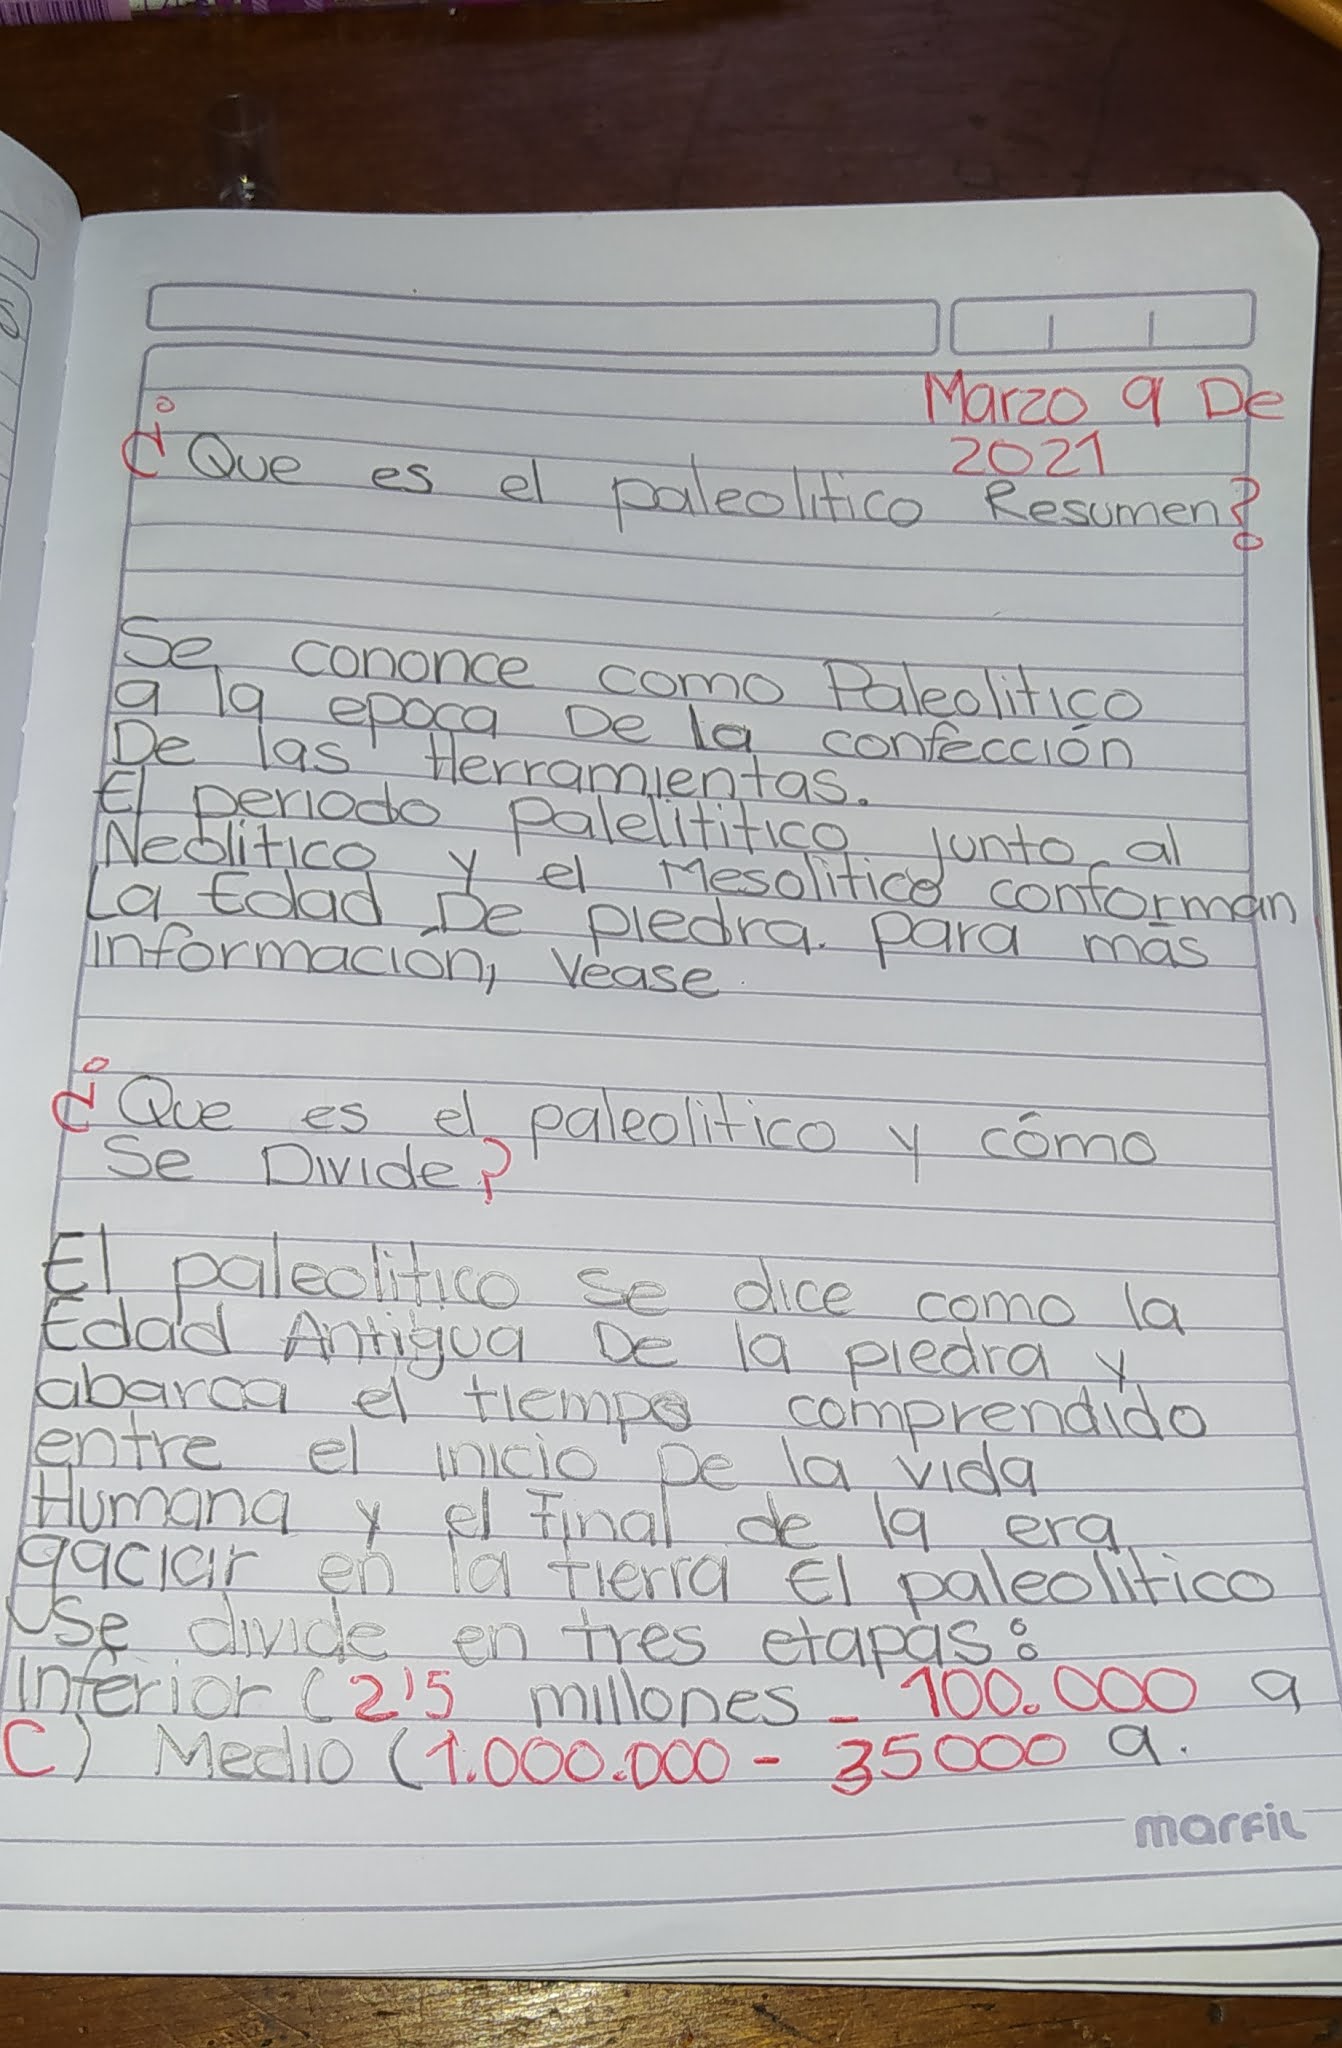 Marzo 9 De
2021
¿Que es el paleolitico Resumen?
Se cononce como Paleolitico
a la epoca De la confección
De las Herramientas.
El periodo palelititico junto al
Neolitico y el Mesolitico conforman
La Edad De piedra. para más
información, vease.
¿Que es el paleolitico y cómo
Se Divide?
El paleolitico se dice como la
Edad Antigua De la piedra y
abarca el tiempo comprendido
entre el inicio De la vida
Humana y el final de la era
gaciar en la tierra El paleolitico
Se divide en tres etapas:
Inferior (2'5 millones - 100.000 a
C) Medio (1.000.000 - 35000 a.
marfil